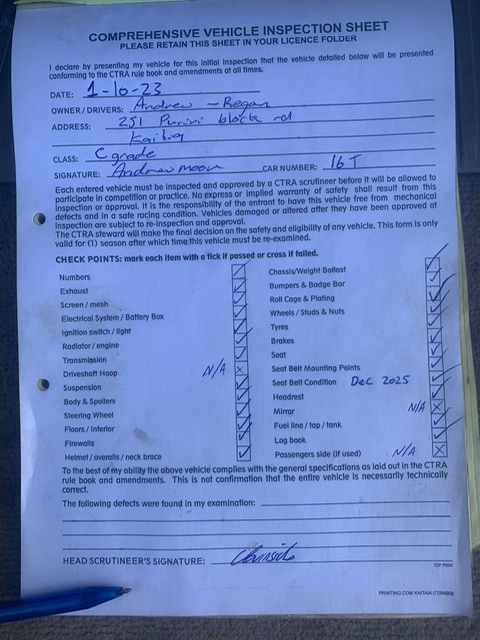 COMPREHENSIVE VEHICLE INSPECTION SHEET
PLEASE RETAIN THIS SHEET IN YOUR LICENCE FOLDER
I declare by presenting my vehicle for this initial inspection that the vehicle detailed below will be presented
conforming to the CTRA rule book and amendments at all times.
DATE: 1-10-23
OWNER / DRIVERS: Andrew - Regan
ADDRESS: 251 Puriri block rd
CLASS: C grade
SIGNATURE: Andrew moon CAR NUMBER: 16 T
Each entered vehicle must be inspected and approved by a CTRA scrutineer before it will be allowed to
participate in competition or practice. No express or implied warranty of safety shall result from this
inspection or approval. It is the responsibility of the entrant to have this vehicle free from mechanical
defects and in a safe racing condition. Vehicles damaged or altered after they have been approved at
inspection are subject to re-inspection and approval.
The CTRA steward will make the final decision on the safety and eligibility of any vehicle. This form is only
valid for (1) season after which time this vehicle must be re-examined.
CHECK POINTS: mark each item with a tick if passed or cross if failed.
Numbers ✓ Chassis/Weight Ballast ✓
Exhaust ✓ Bumpers & Badge Bar ✓
Screen / mesh ✓ Roll Cage & Plating ✓
Electrical System / Battery Box ✓ Wheels / Studs & Nuts ✓
Ignition switch / light ✓ Tyres ✓
Radiator / engine ✓ Brakes ✓
Transmission ✓ Seat ✓
Driveshaft Hoop N/A x Seat Belt Mounting Points ✓
Suspension ✓ Seat Belt Condition Dec 2025 ✓
Body & Spoilers ✓ Headrest ✓
Steering Wheel ✓ Mirror N/A x
Floors / Interior ✓ Fuel line / tap / tank ✓
Firewalls ✓ Log book ✓
Helmet / overalls / neck brace ✓ Passengers side (if used) N/A x
To the best of my ability the above vehicle complies with the general specifications as laid out in the CTRA
rule book and amendments. This is not confirmation that the entire vehicle is necessarily technically
correct.
The following defects were found in my examination:
HEAD SCRUTINEER'S SIGNATURE:
TOP PRINT
PRINTING.COM KAITAIA